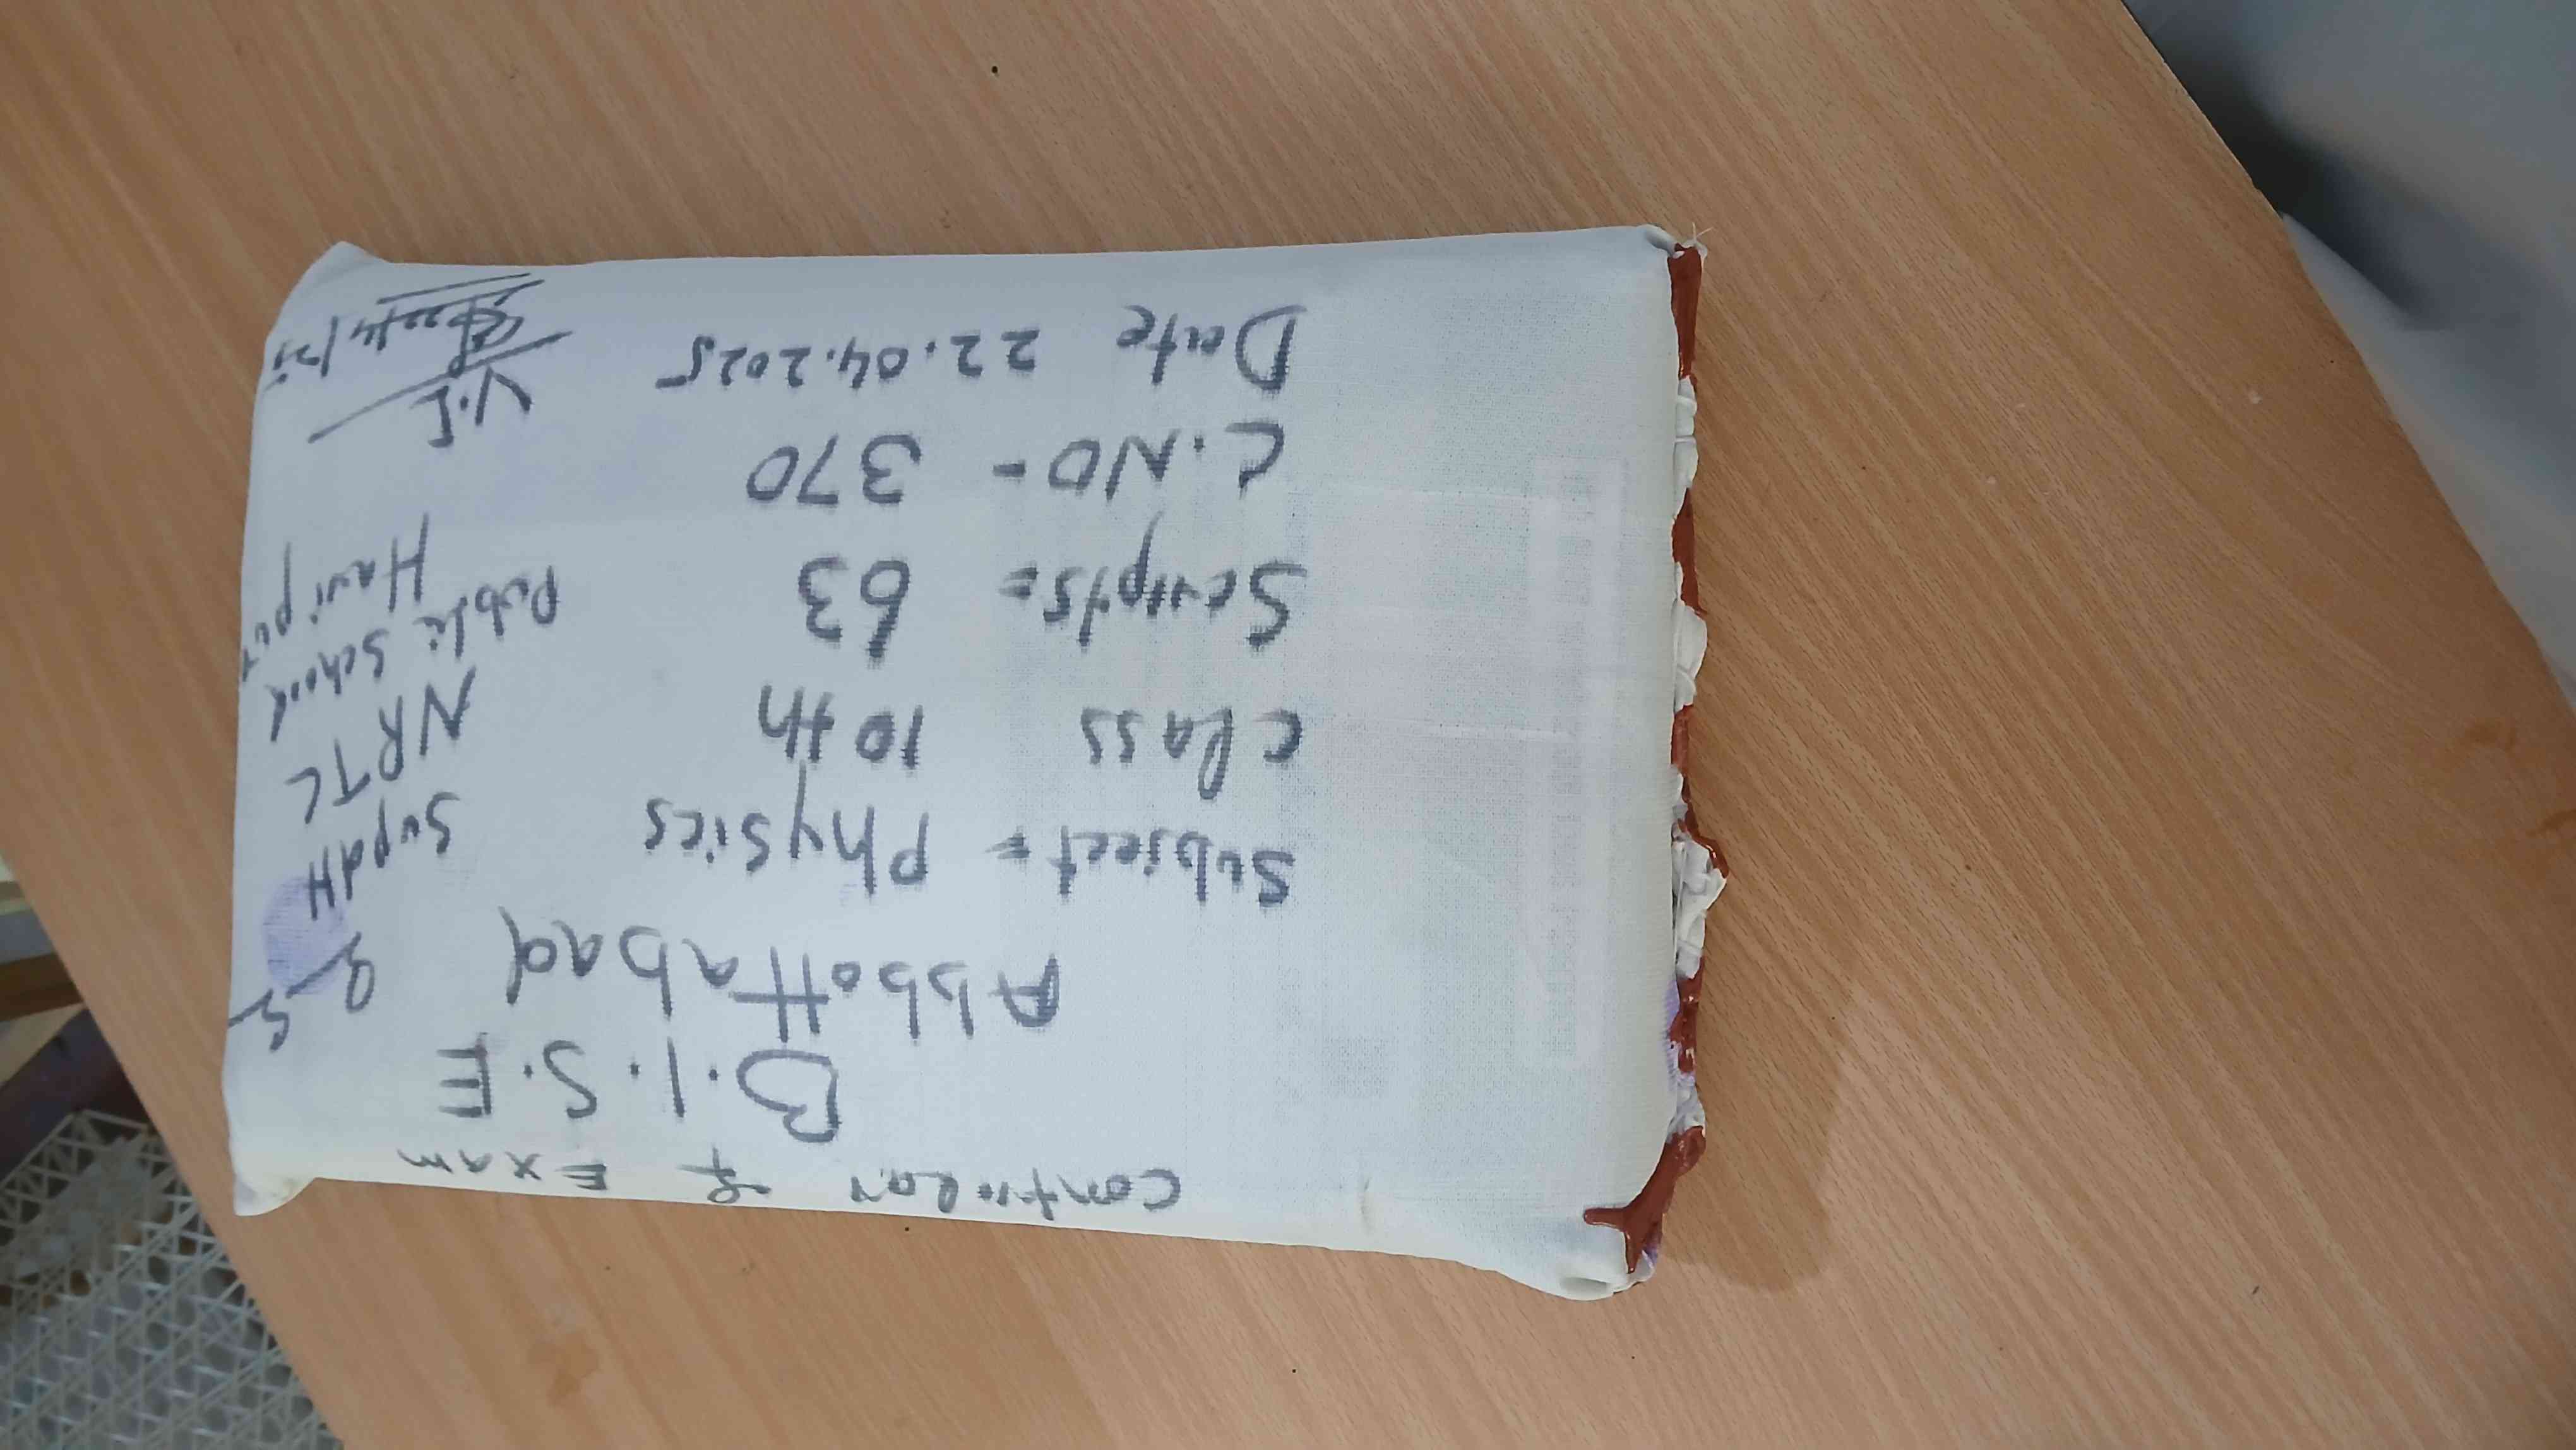 Controlar of Exam
B.I.S.E
Abbottabad
Subject = Physics
Class 10th
Scripts = 63
C.NO - 370
Date 22.04.2025
Supdtt
NRTC
Public School
Haripur
V.I
22/4/25